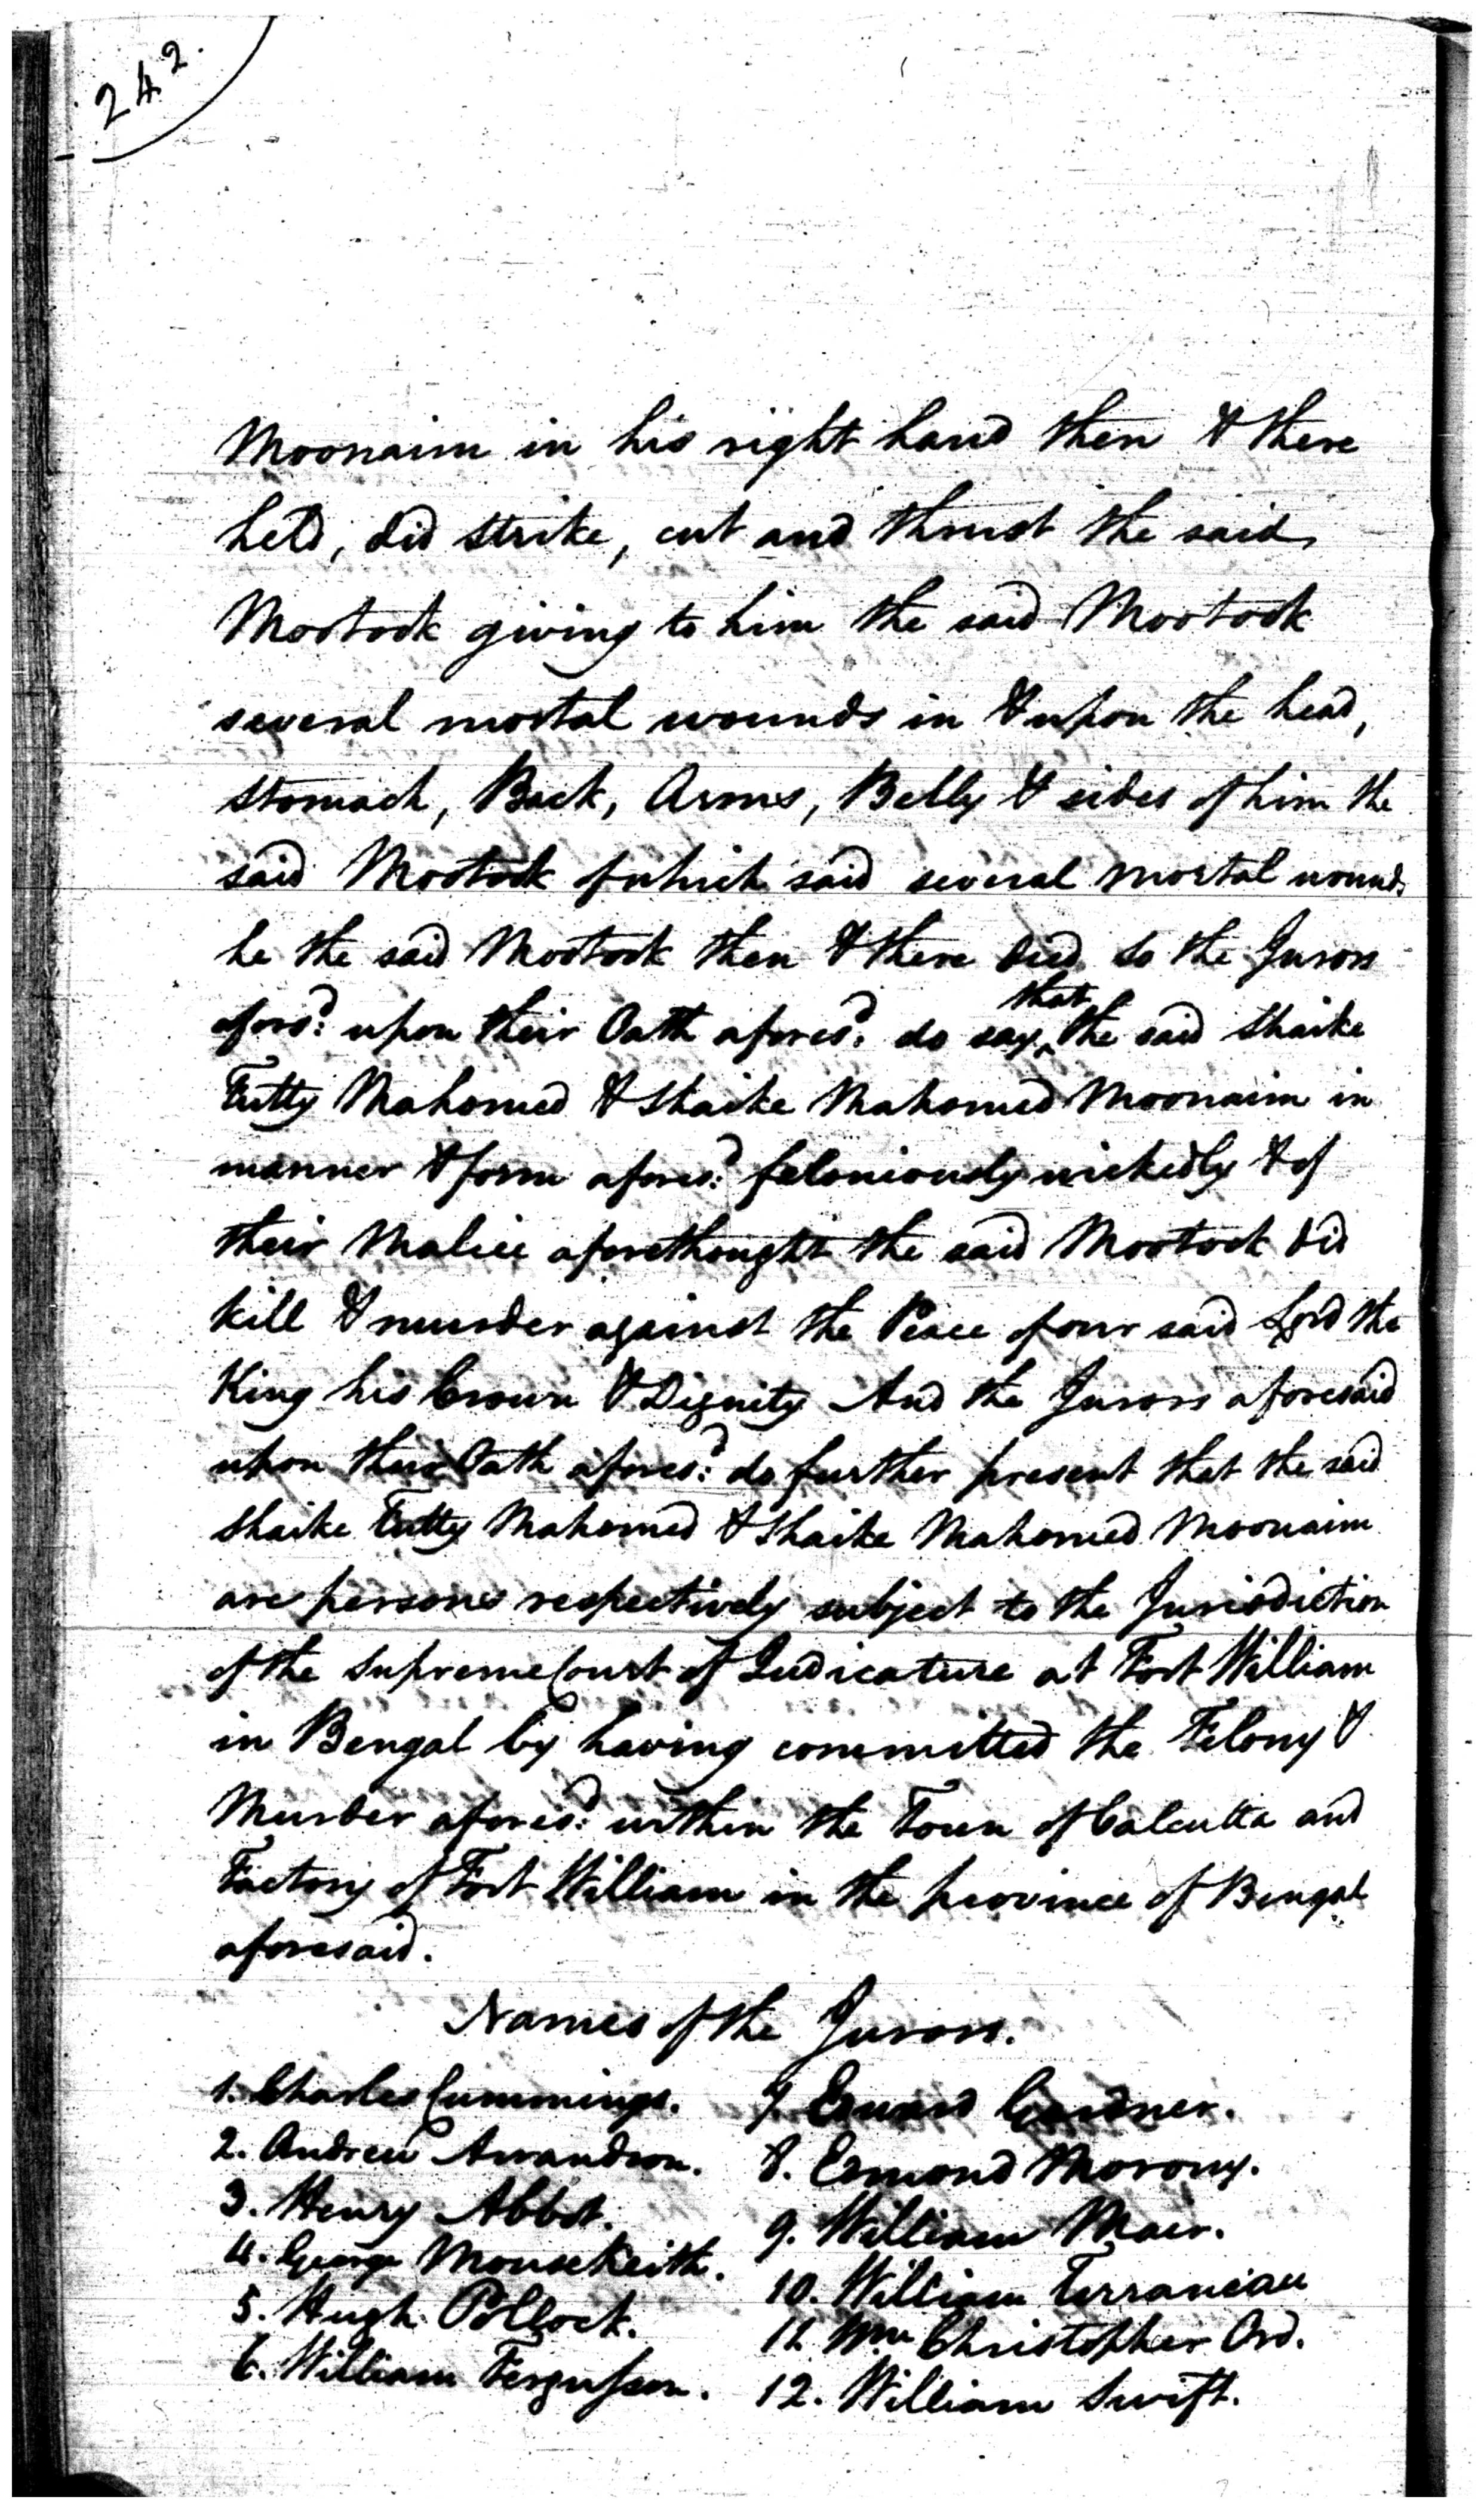 242.
Moonaim in his right hand then & there
held, did strike, cut and thrust the said
Mootook giving to him the said Mootook
several mortal wounds in & upon the head,
Stomach, Back, Arms, Belly & sides of him the
said Mootook of which said several mortal wounds
he the said Mootook then & there died so the Jurors
afors:d upon their Oath afores:d do say that the said Shaike
Futty Mahomed & Shaike Mahomed Moonaim in
manner & form afores:d feloniously wickedly & of
their Malice aforethought the said Mootook did
kill & murder against the Peace of our said Lord the
King his Crown & Dignity And the Jurors aforesaid
upon their Oath afores:d do further present that the said
Shaike Futty Mahomed & Shaike Mahomed Moonaim
are persons respectively subject to the Jurisdiction
of the Supreme Court of Judicature at Fort William
in Bengal by having committed the Felony &
Murder afores:d within the Town of Calcutta and
Factory of Fort William in the province of Bengal
aforesaid.
Names of the Jurors.
1. Charles Cummings. 7 Edward Gardner.
2. Andrew 8. Edmond Morony.
3. Henry Abbot. 9. William Mair.
4. George Mousekeith. 10. William Terraneau
5. Hugh Pollock. 11. Wm Christopher Ord.
6. William Fergusson. 12. William Swift.